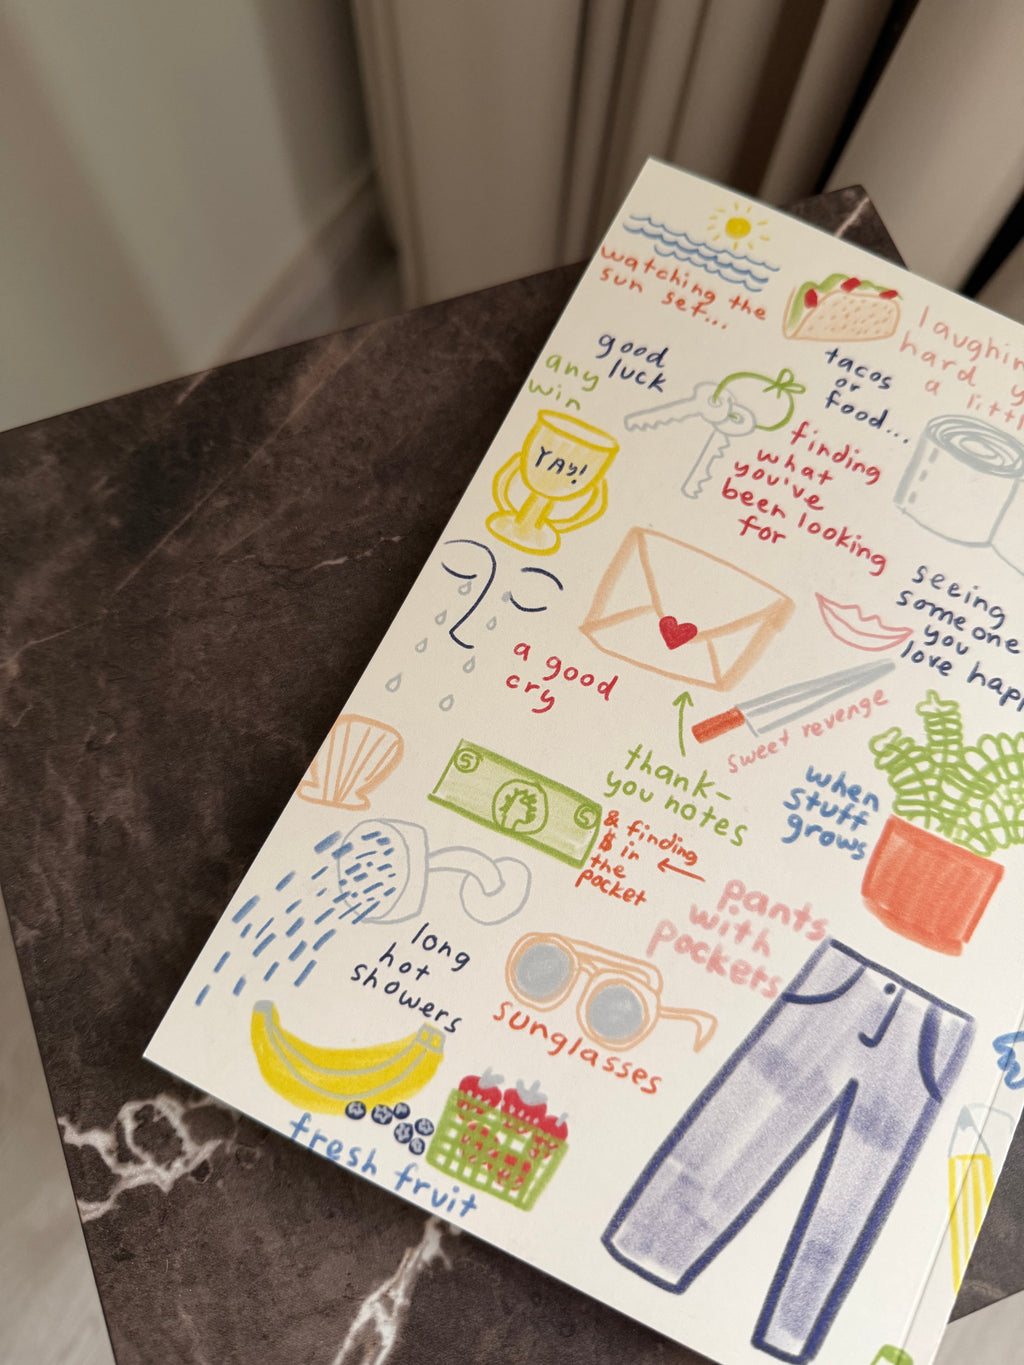 watching the
sun set...
laughing
hard y
a littl
good
luck
tacos
or
food...
any
win
YAY!
finding
what
you've
been looking
for
seeing
someone
you
love happ
a good
cry
sweet revenge
thank-
you notes
when
stuff
grows
5
5
& finding
$ in
the
pocket
pants
with
pockets
long
hot
showers
sunglasses
fresh fruit